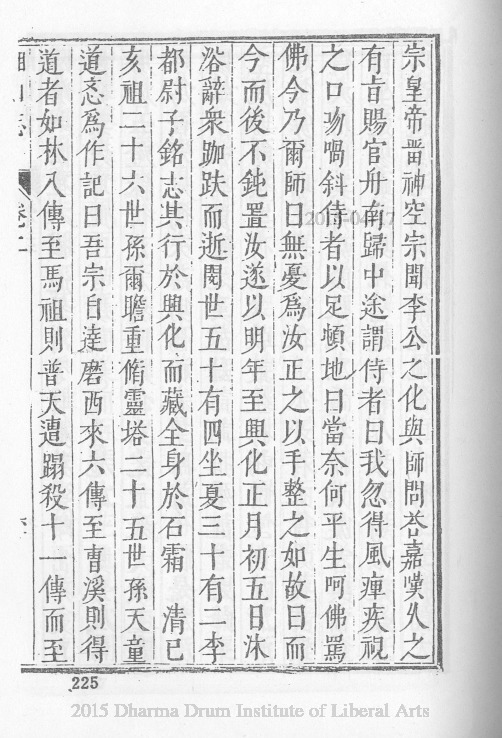 宗皇帝畱神空宗聞李公之化與師問荅嘉嘆乆之
有旨賜官舟南歸中途謂侍者曰我忽得風痺疾視
之口吻喎斜侍者以足頓地曰當奈何平生呵佛罵
佛今乃爾師曰無憂爲汝正之以手整之如故曰而
今而後不鈍置汝遂以明年至興化正月初五日沐
浴辭衆跏趺而逝閱世五十有四坐夏三十有二李
都尉子銘志其行於興化而藏全身於石霜 清已
亥祖二十六世孫爾瞻重脩靈塔二十五世孫天童
道忞爲作記曰吾宗自達磨西來六傳至曹溪則得
道者如林八傳至馬祖則普天遭蹋殺十一傳而至
卷二
225
2015-04-17
2015 Dharma Drum Institute of Liberal Arts